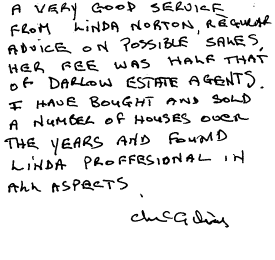 A VERY GOOD SERVICE
FROM LINDA NORTON, REGULAR
ADVICE ON POSSIBLE SALES,
HER FEE WAS HALF THAT
OF DARLOW ESTATE AGENTS.
I HAVE BOUGHT AND SOLD
A NUMBER OF HOUSES OVER
THE YEARS AND FOUND
LINDA PROFFESIONAL IN
ALL ASPECTS